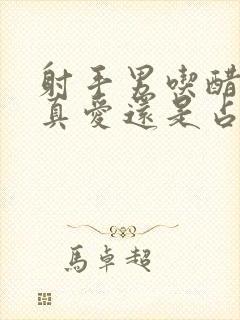 射手男喫醋
真愛還是占
馬卓超